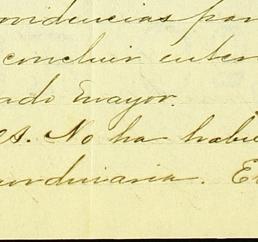 ovidencias par
concluir enter
ado Mayor.
es. No ha habie
aordinaria. E